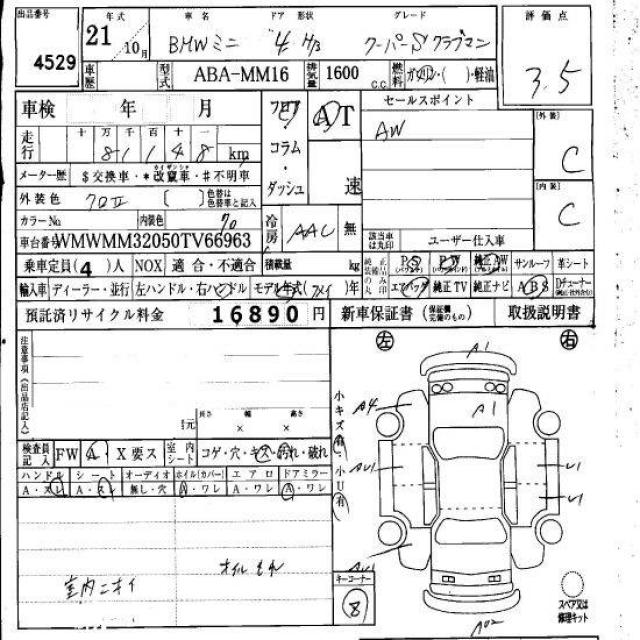 出品番号 4529
年式 21 10月
車名 BMWミニ
ドア 形状 4 H/B
グレード クーパーSクラブマン
評価点 3.5
車歴
型式 ABA-MM16
排気量 1600 C.C
燃料 ガソリン・( )・軽油
車検 年 月
フロア コラム・ダッシュ
AT 速
セールスポイント
AW
[外装] C
[内装] C
走行 十 万 千 百 十 一
8 1 1 4 8 km
メーター歴 $交換車・*改竄車・#不明車
外装色 クロII [ ] 色替は色替車名と記入
カラーNo 内装色 70
冷房 AAC 無
該当車は丸印 ユーザー仕入車
車台番号 WMWMM32050TV66963
乗車定員(4)人 NOX 適合・不適合 積載量 kg
純正装備品のみ丸印 PS PW 純正AW サンルーフ 革シート
エアバッグ 純正TV 純正ナビ ABS Dチューナー
輸入車 ディーラー・並行 左ハンドル・右ハンドル モデル年式( )年
預託済リサイクル料金 16890 円 新車保証書 取扱説明書
注意事項(出品店記入)
左 右
A1
A4 A1
小キズ有 小U有
単元 長さ × 幅 × 高さ
検査員記入 FW A X要ス 室内シート コゲ・穴・キズ・汚れ・破れ
ハンドル シート オーディオ ホイル(カバー) エアロ ドアミラー
A・スレ A・スレ 無し・穴 A・ワレ A・ワレ A・ワレ
オイルもれ
室内ニオイ
キーコーナー 8
スペア又は修理キット